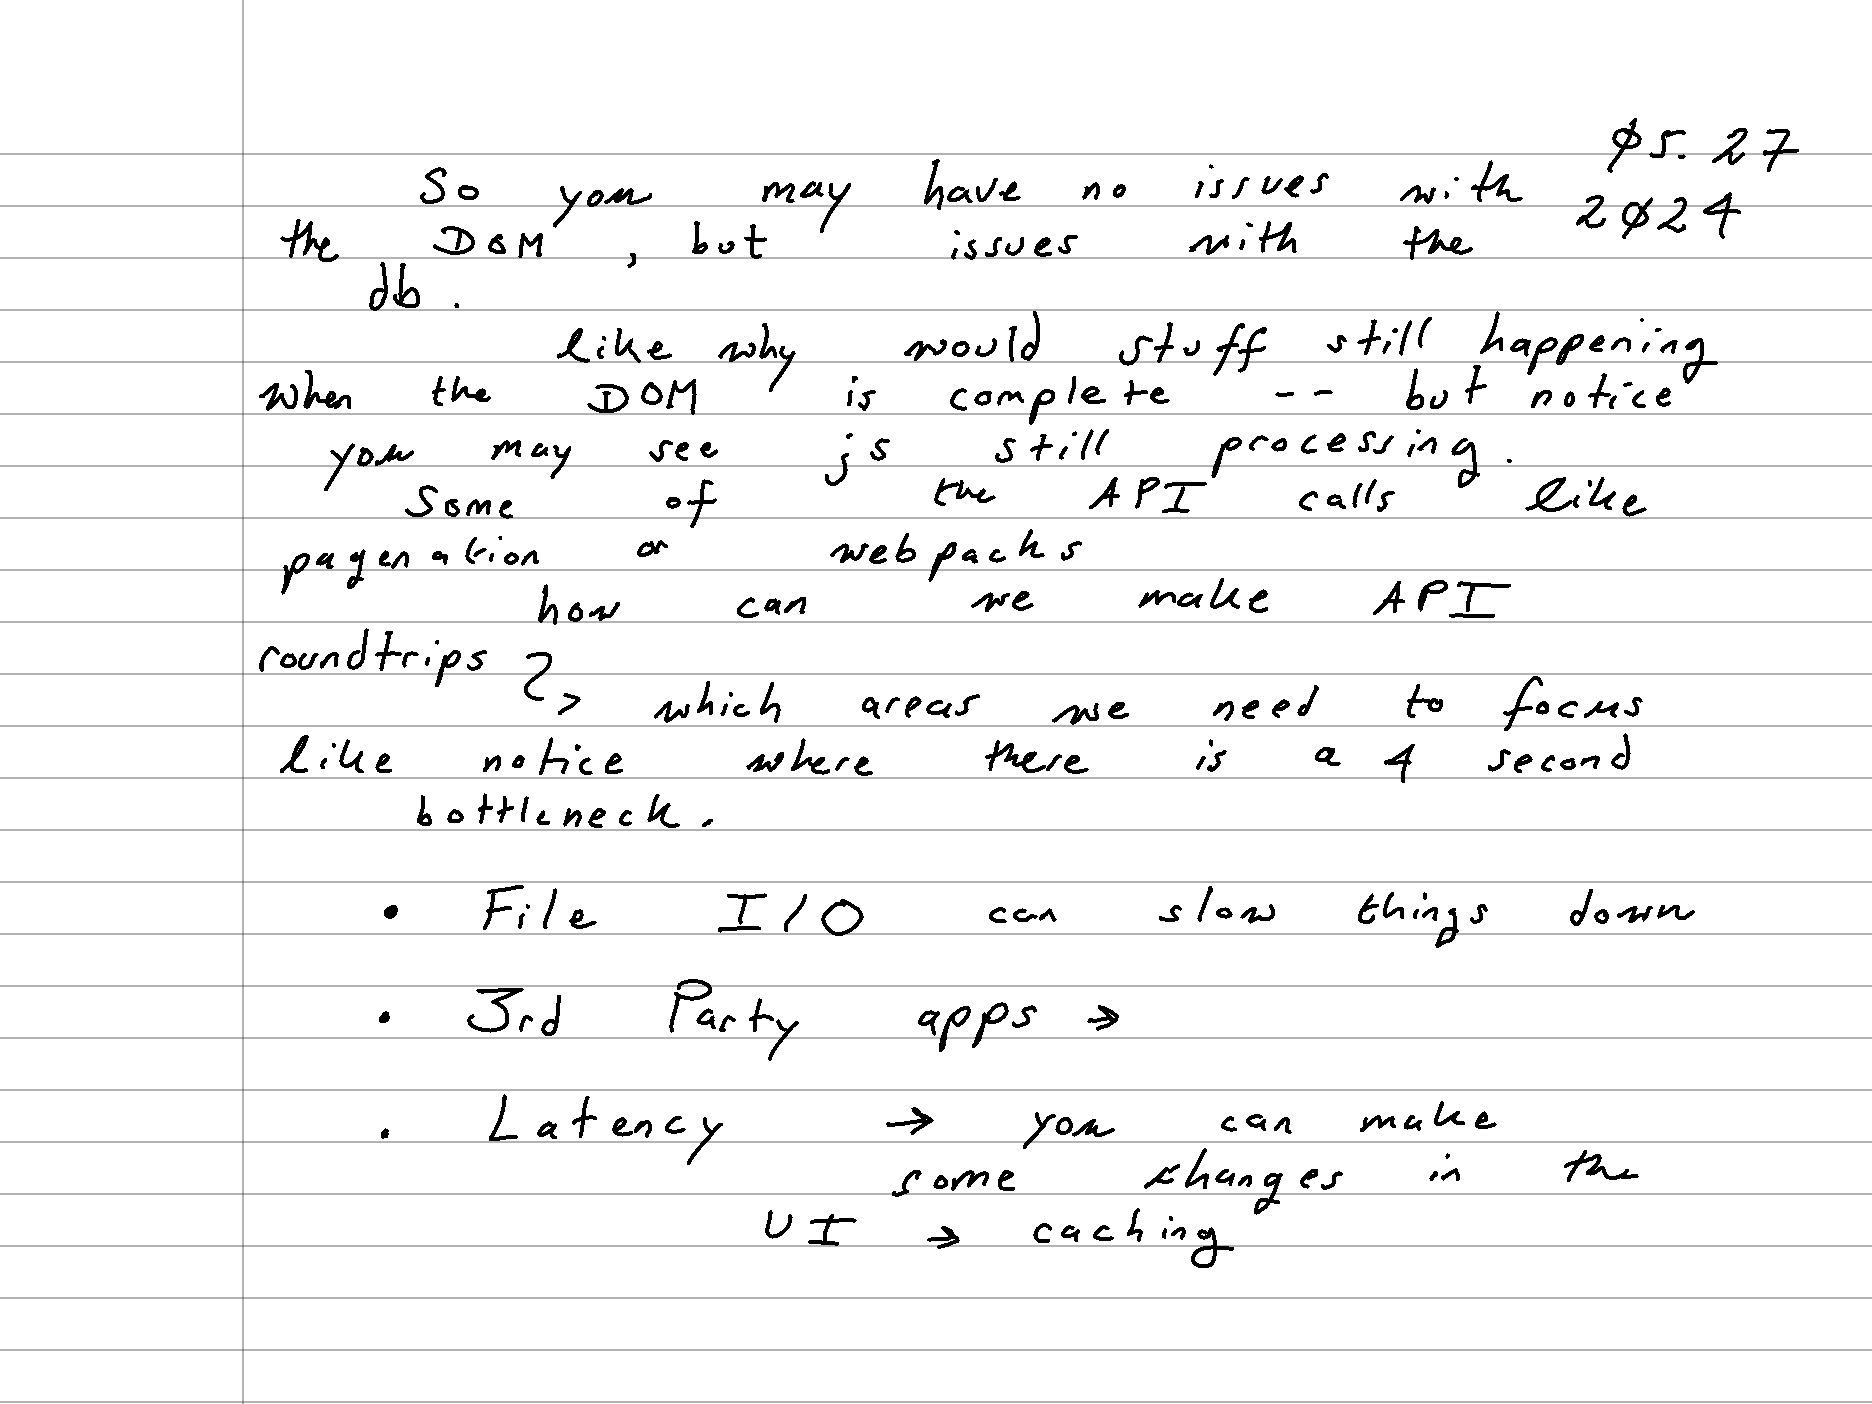 ø5. 27
2ø24
So you may have no issues with
the DOM, but issues with the
db.
like why would stuff still happening
when the DOM is complete -- but notice
you may see js still processing.
Some of the API calls like
pagenation or webpacks
how can we make API
roundtrips
> which areas we need to focus
like notice where there is a 4 second
bottleneck.
• File I/O can slow things down
• 3rd Party apps →
• Latency → you can make
some changes in the
UI → caching